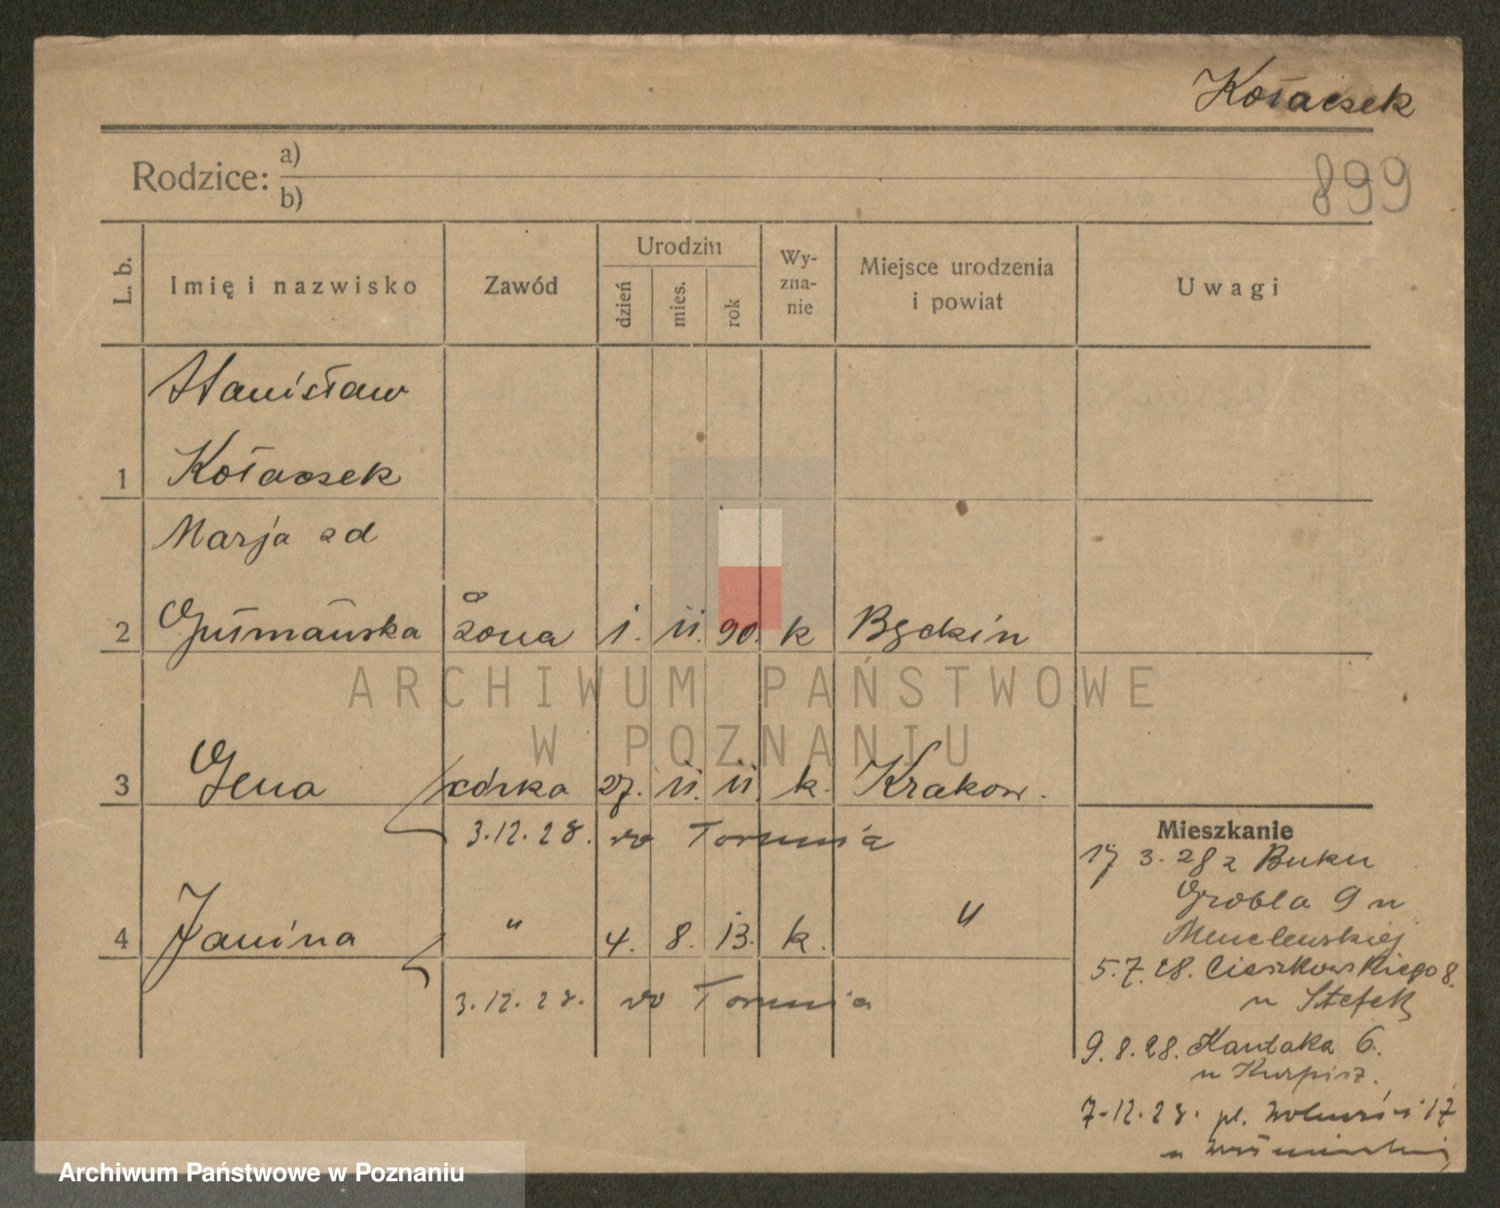 Kołaczek
Rodzice:
a)
b)
899
L. b.
Imię i nazwisko
Zawód
Urodzin
dzień
mies.
rok
Wy-
zna-
nie
Miejsce urodzenia
i powiat
Uwagi
Stanisław
1 Kołaczek
Marja zd
2 żona 1. 11. 90. k
3 Gena córka 27. 11. 11. k. Krakow.
3.12.28. do Torunia
4 Janina " 4. 8. 13. k. "
3.12.28. do Torunia
Mieszkanie
17 3. 28 z Buku
Grobla 9 u
5.7.28. Cieszkowskiego 8.
u Stefek
9.8.28. Kantaka 6.
u Kurpisz.
7-12.28. pl. Wolności 17
u
ARCHIWUM PAŃSTWOWE
W POZNANIU
Archiwum Państwowe w Poznaniu